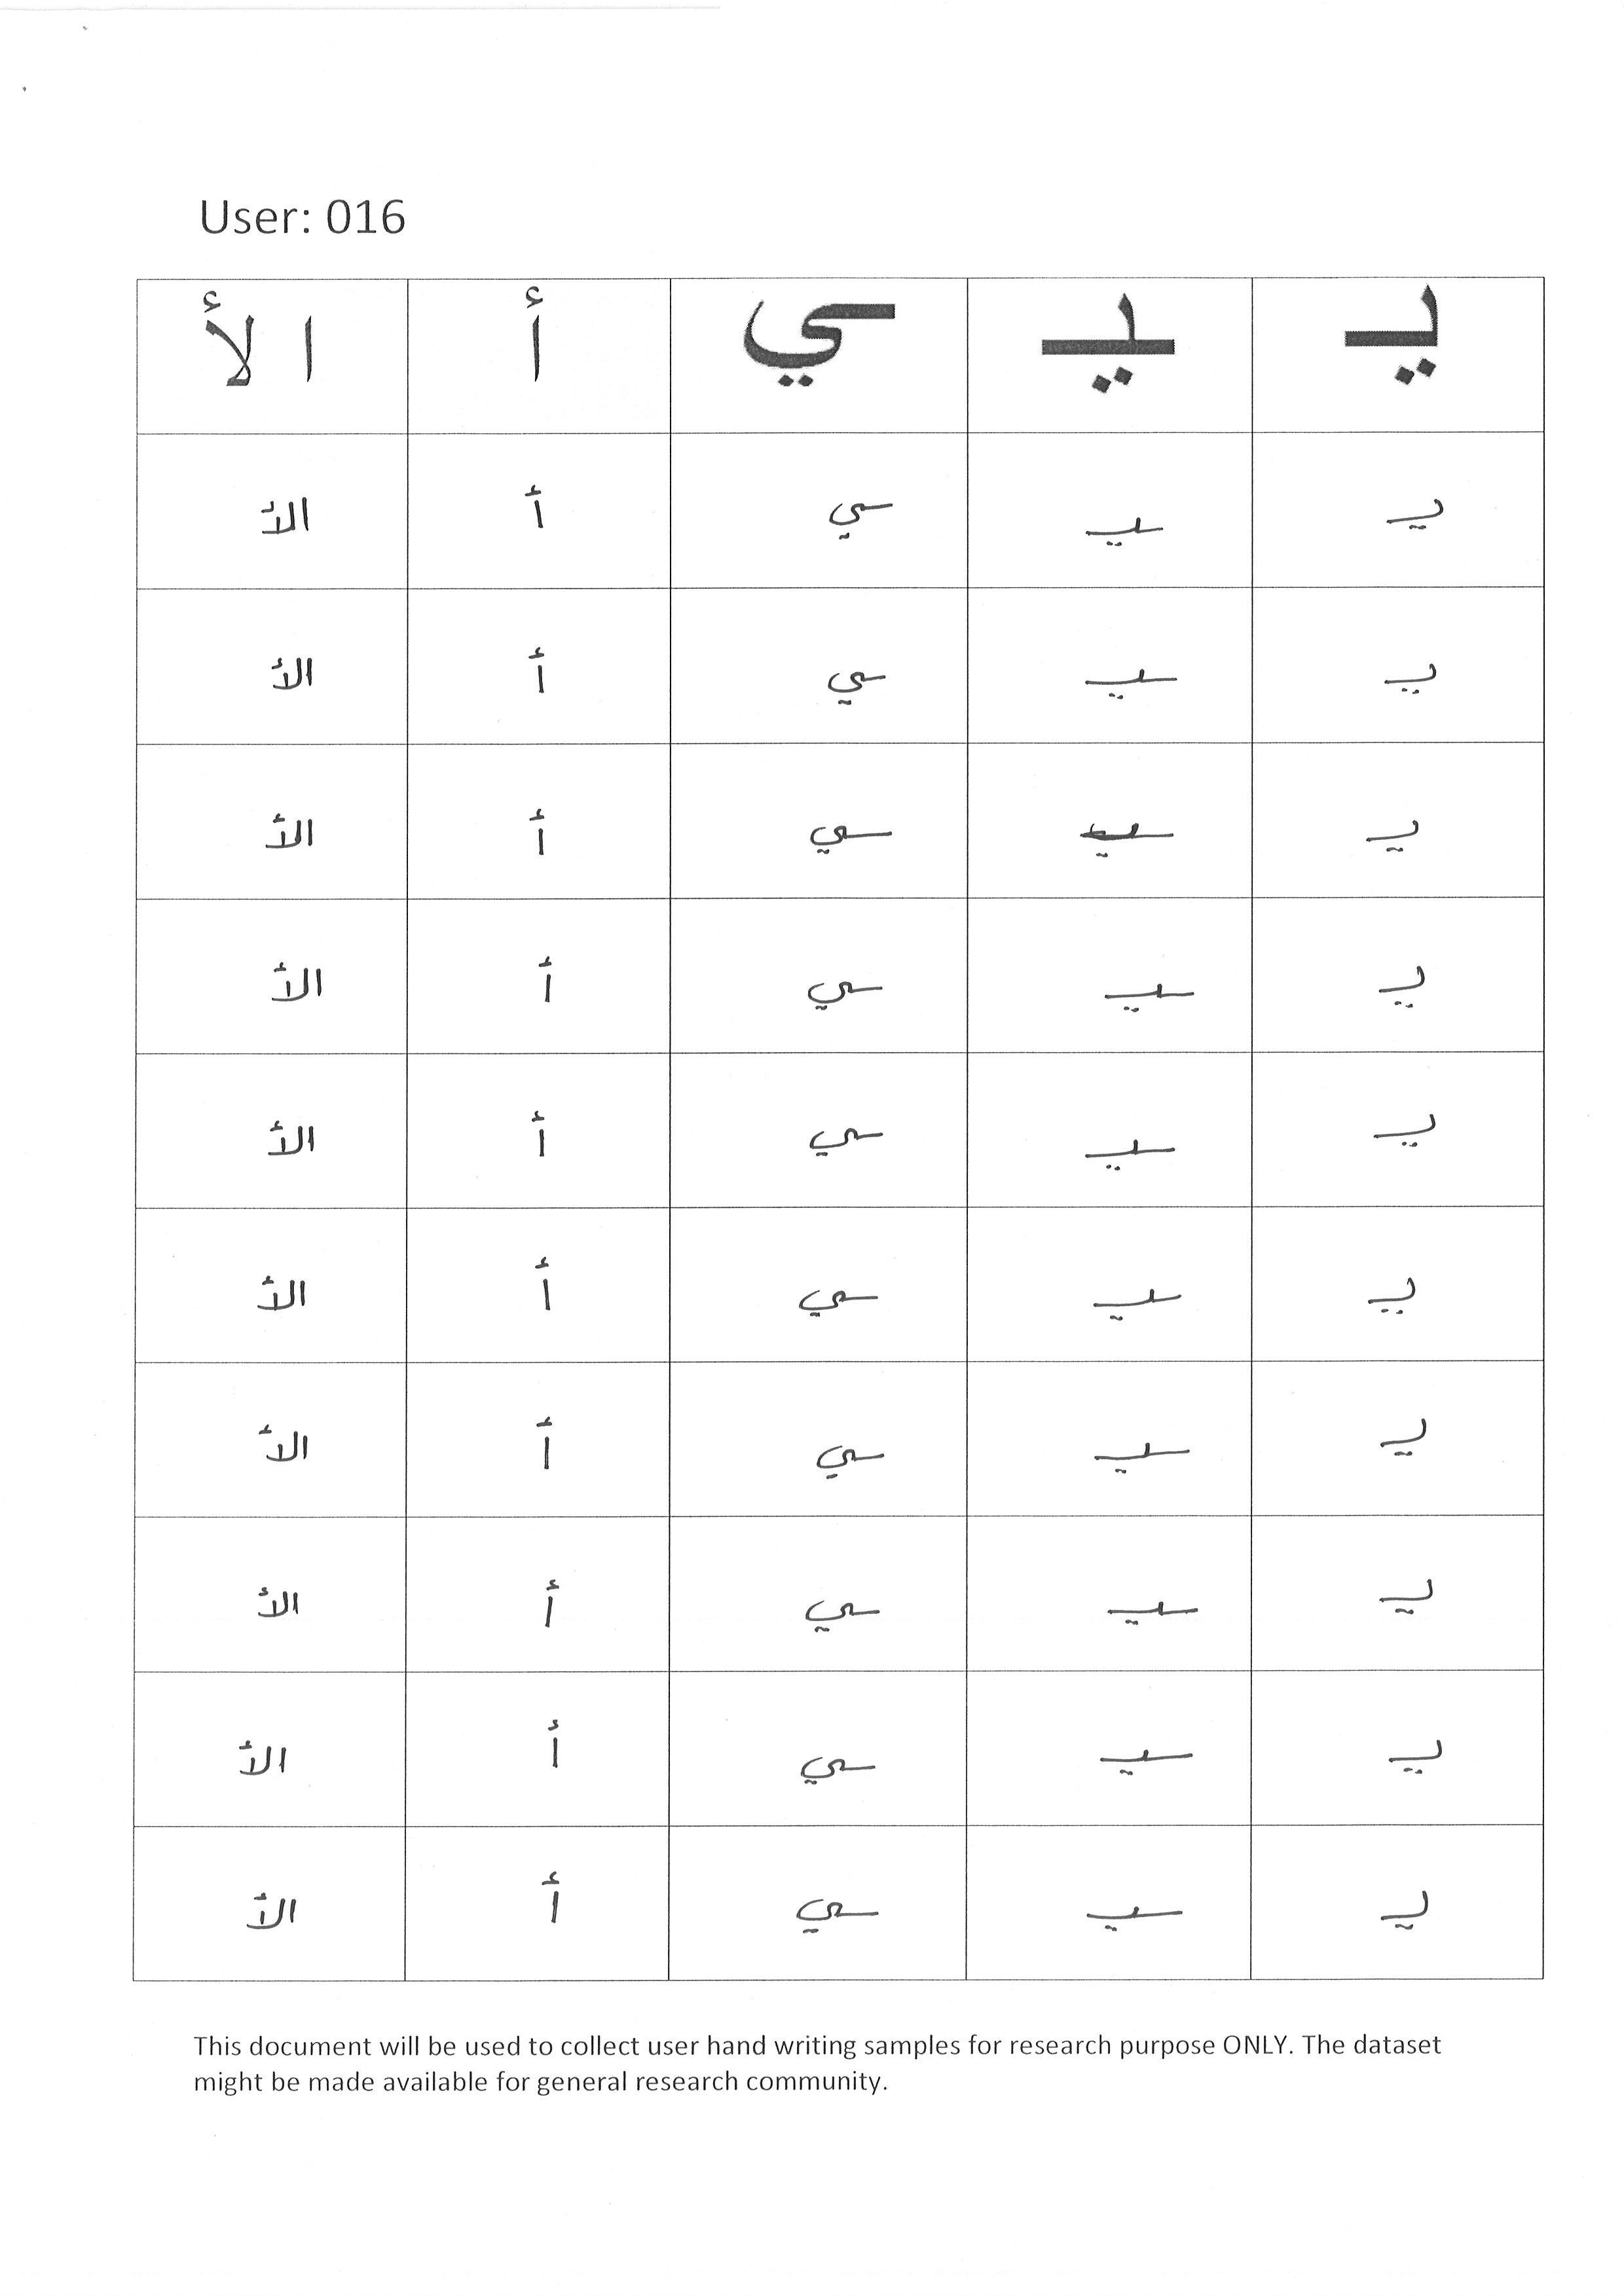 User: 016
يـ ـيـ ـي أ ا لأ
يـ ـيـ ـي أ الأ
يـ ـيـ ـي أ الأ
يـ ـيـ ـي أ الأ
يـ ـيـ ـي أ الأ
يـ ـيـ ـي أ الأ
يـ ـيـ ـي أ الأ
يـ ـيـ ـي أ الأ
يـ ـيـ ـي أ الأ
يـ ـيـ ـي أ الأ
يـ ـيـ ـي أ الأ
This document will be used to collect user hand writing samples for research purpose ONLY. The dataset
might be made available for general research community.